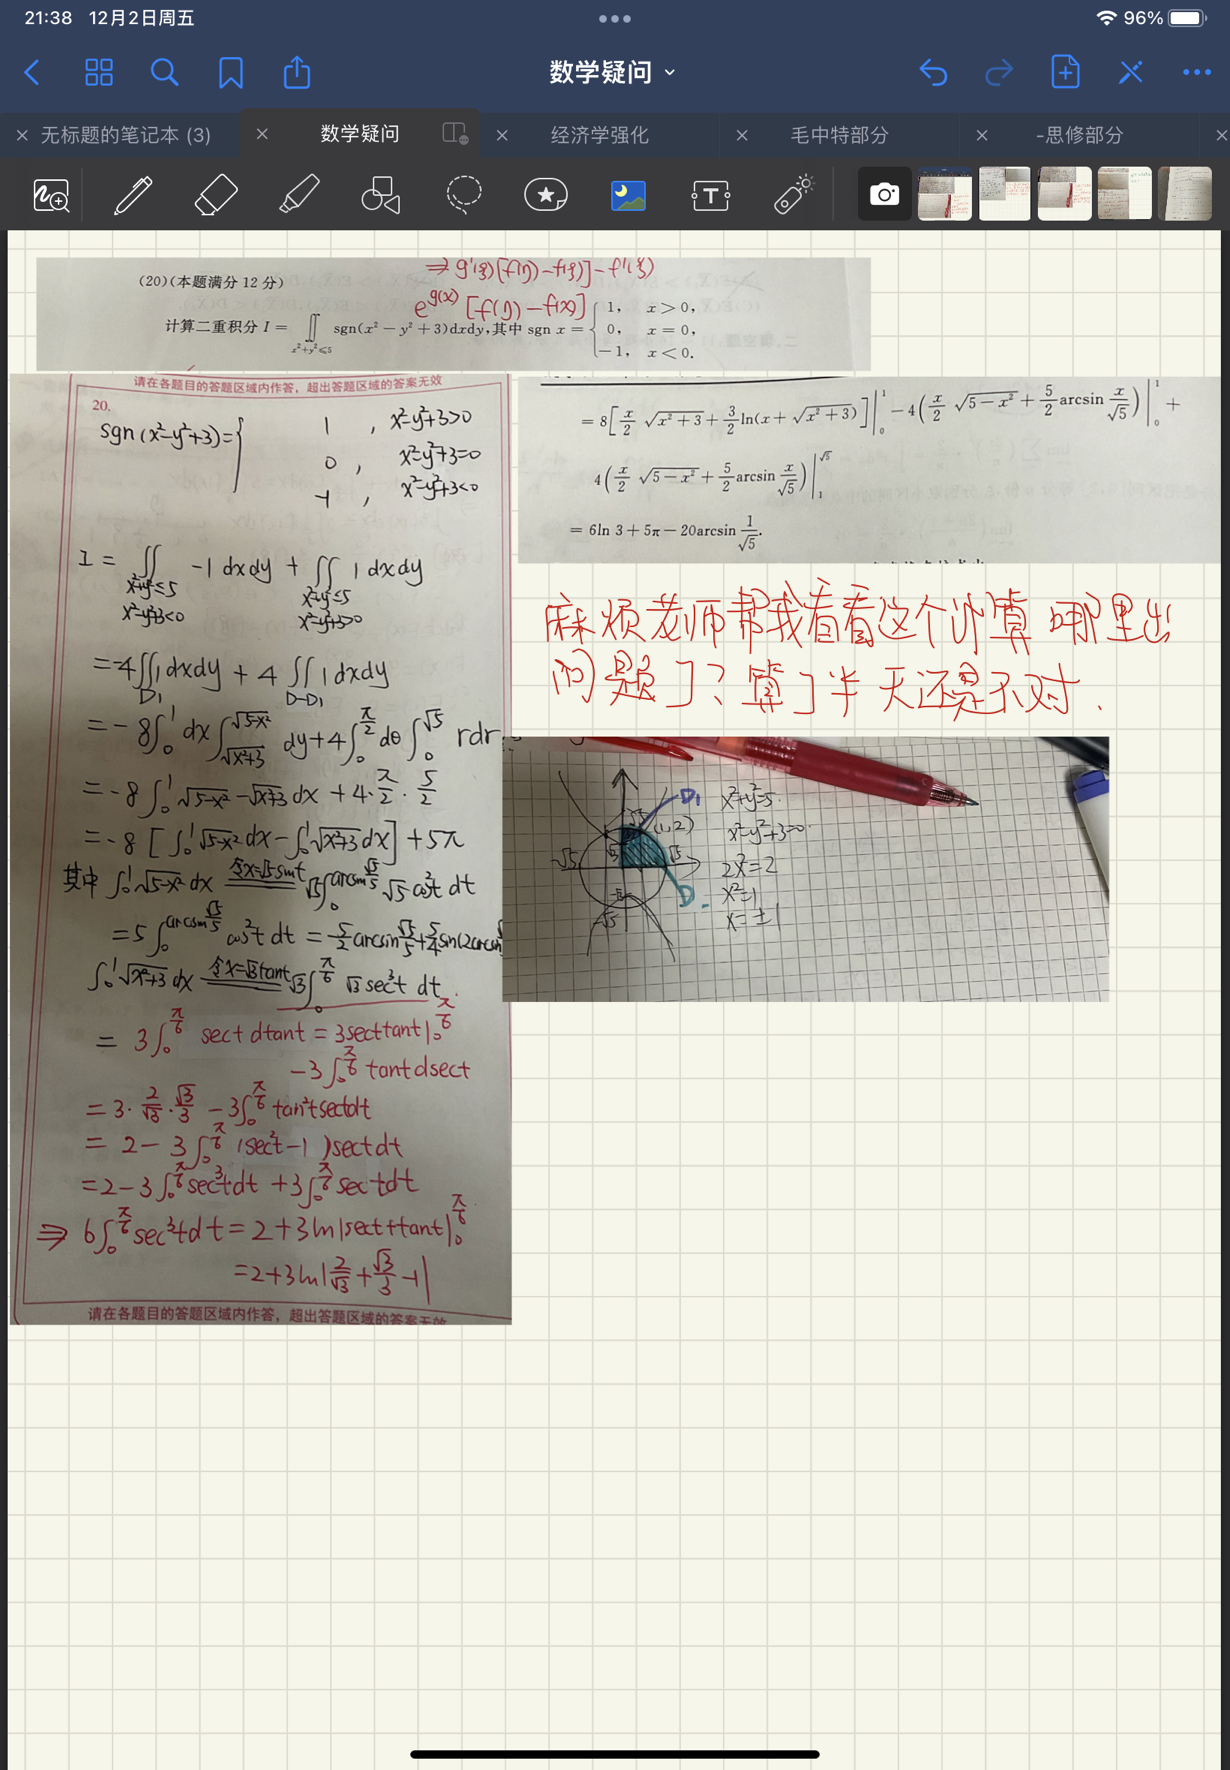 21:38 12月2日周五
96%
数学疑问
无标题的笔记本 (3)
数学疑问
经济学强化
毛中特部分
-思修部分
⇒ g'(ξ)[f(1)-f(ξ)]-f'(ξ)
(20)(本题满分 12 分)
e^{g(x)} [f(1)-f(x)]
计算二重积分 I = ∬_{x²+y²≤5} sgn(x² − y² + 3)dxdy,其中 sgn x = { 1, x > 0,
0, x = 0,
−1, x < 0.
请在各题目的答题区域内作答，超出答题区域的答案无效
20.
sgn(x²-y²+3)={ 1 , x²-y²+3>0
0 , x²-y²+3=0
-1 , x²-y²+3<0
I = ∬_{x²+y²≤5, x²-y²+3<0} -1 dxdy + ∬_{x²+y²≤5, x²-y²+3>0} 1 dxdy
=-4∬_{D₁} 1 dxdy + 4 ∬_{D-D₁} 1 dxdy
= -8∫₀¹ dx ∫_{√(x²+3)}^{√(5-x²)} dy + 4∫₀^{π/2} dθ ∫₀^{√5} r dr
= -8 ∫₀¹ √(5-x²) - √(x²+3) dx + 4·π/2·5/2
= -8 [∫₀¹ √(5-x²) dx - ∫₀¹ √(x²+3) dx] + 5π
其中 ∫₀¹ √(5-x²) dx 令x=√5 sint √5∫₀^{arcsin √5/5} √5 cos²t dt
= 5 ∫₀^{arcsin √5/5} cos²t dt = 5/2 arcsin √5/5 + 5/4 sin(2arcsin
∫₀¹ √(x²+3) dx 令x=√3tant √3∫₀^{π/6} √3 sec³t dt
= 3∫₀^{π/6} sect dtant = 3sect tant|₀^{π/6}
-3∫₀^{π/6} tant dsect
= 3· 2/√3 · √3/3 - 3∫₀^{π/6} tan²t sect dt
= 2 - 3∫₀^{π/6} (sec²t-1)sect dt
=2-3∫₀^{π/6} sec³t dt +3∫₀^{π/6} sect dt
⇒ 6∫₀^{π/6} sec³t dt = 2+3ln|sect+tant||₀^{π/6}
=2+3ln|2/√3 + √3/3 -1|
请在各题目的答题区域内作答，超出答题区域的答案无效
= 8[x/2 √(x²+3) + 3/2 ln(x + √(x²+3))]|₀¹ − 4(x/2 √(5−x²) + 5/2 arcsin x/√5)|₀¹ +
4(x/2 √(5−x²) + 5/2 arcsin x/√5)|₁^{√5}
= 6ln 3 + 5π − 20arcsin 1/√5.
麻烦老师帮我看看这个计算 哪里出
问题了?算了半天还是不对.
D₁
(1,2)
-√5
√5
√3
D
-√5
x²+y²=5.
x²-y²+3=0
2x²=2
x²=1
x=±1